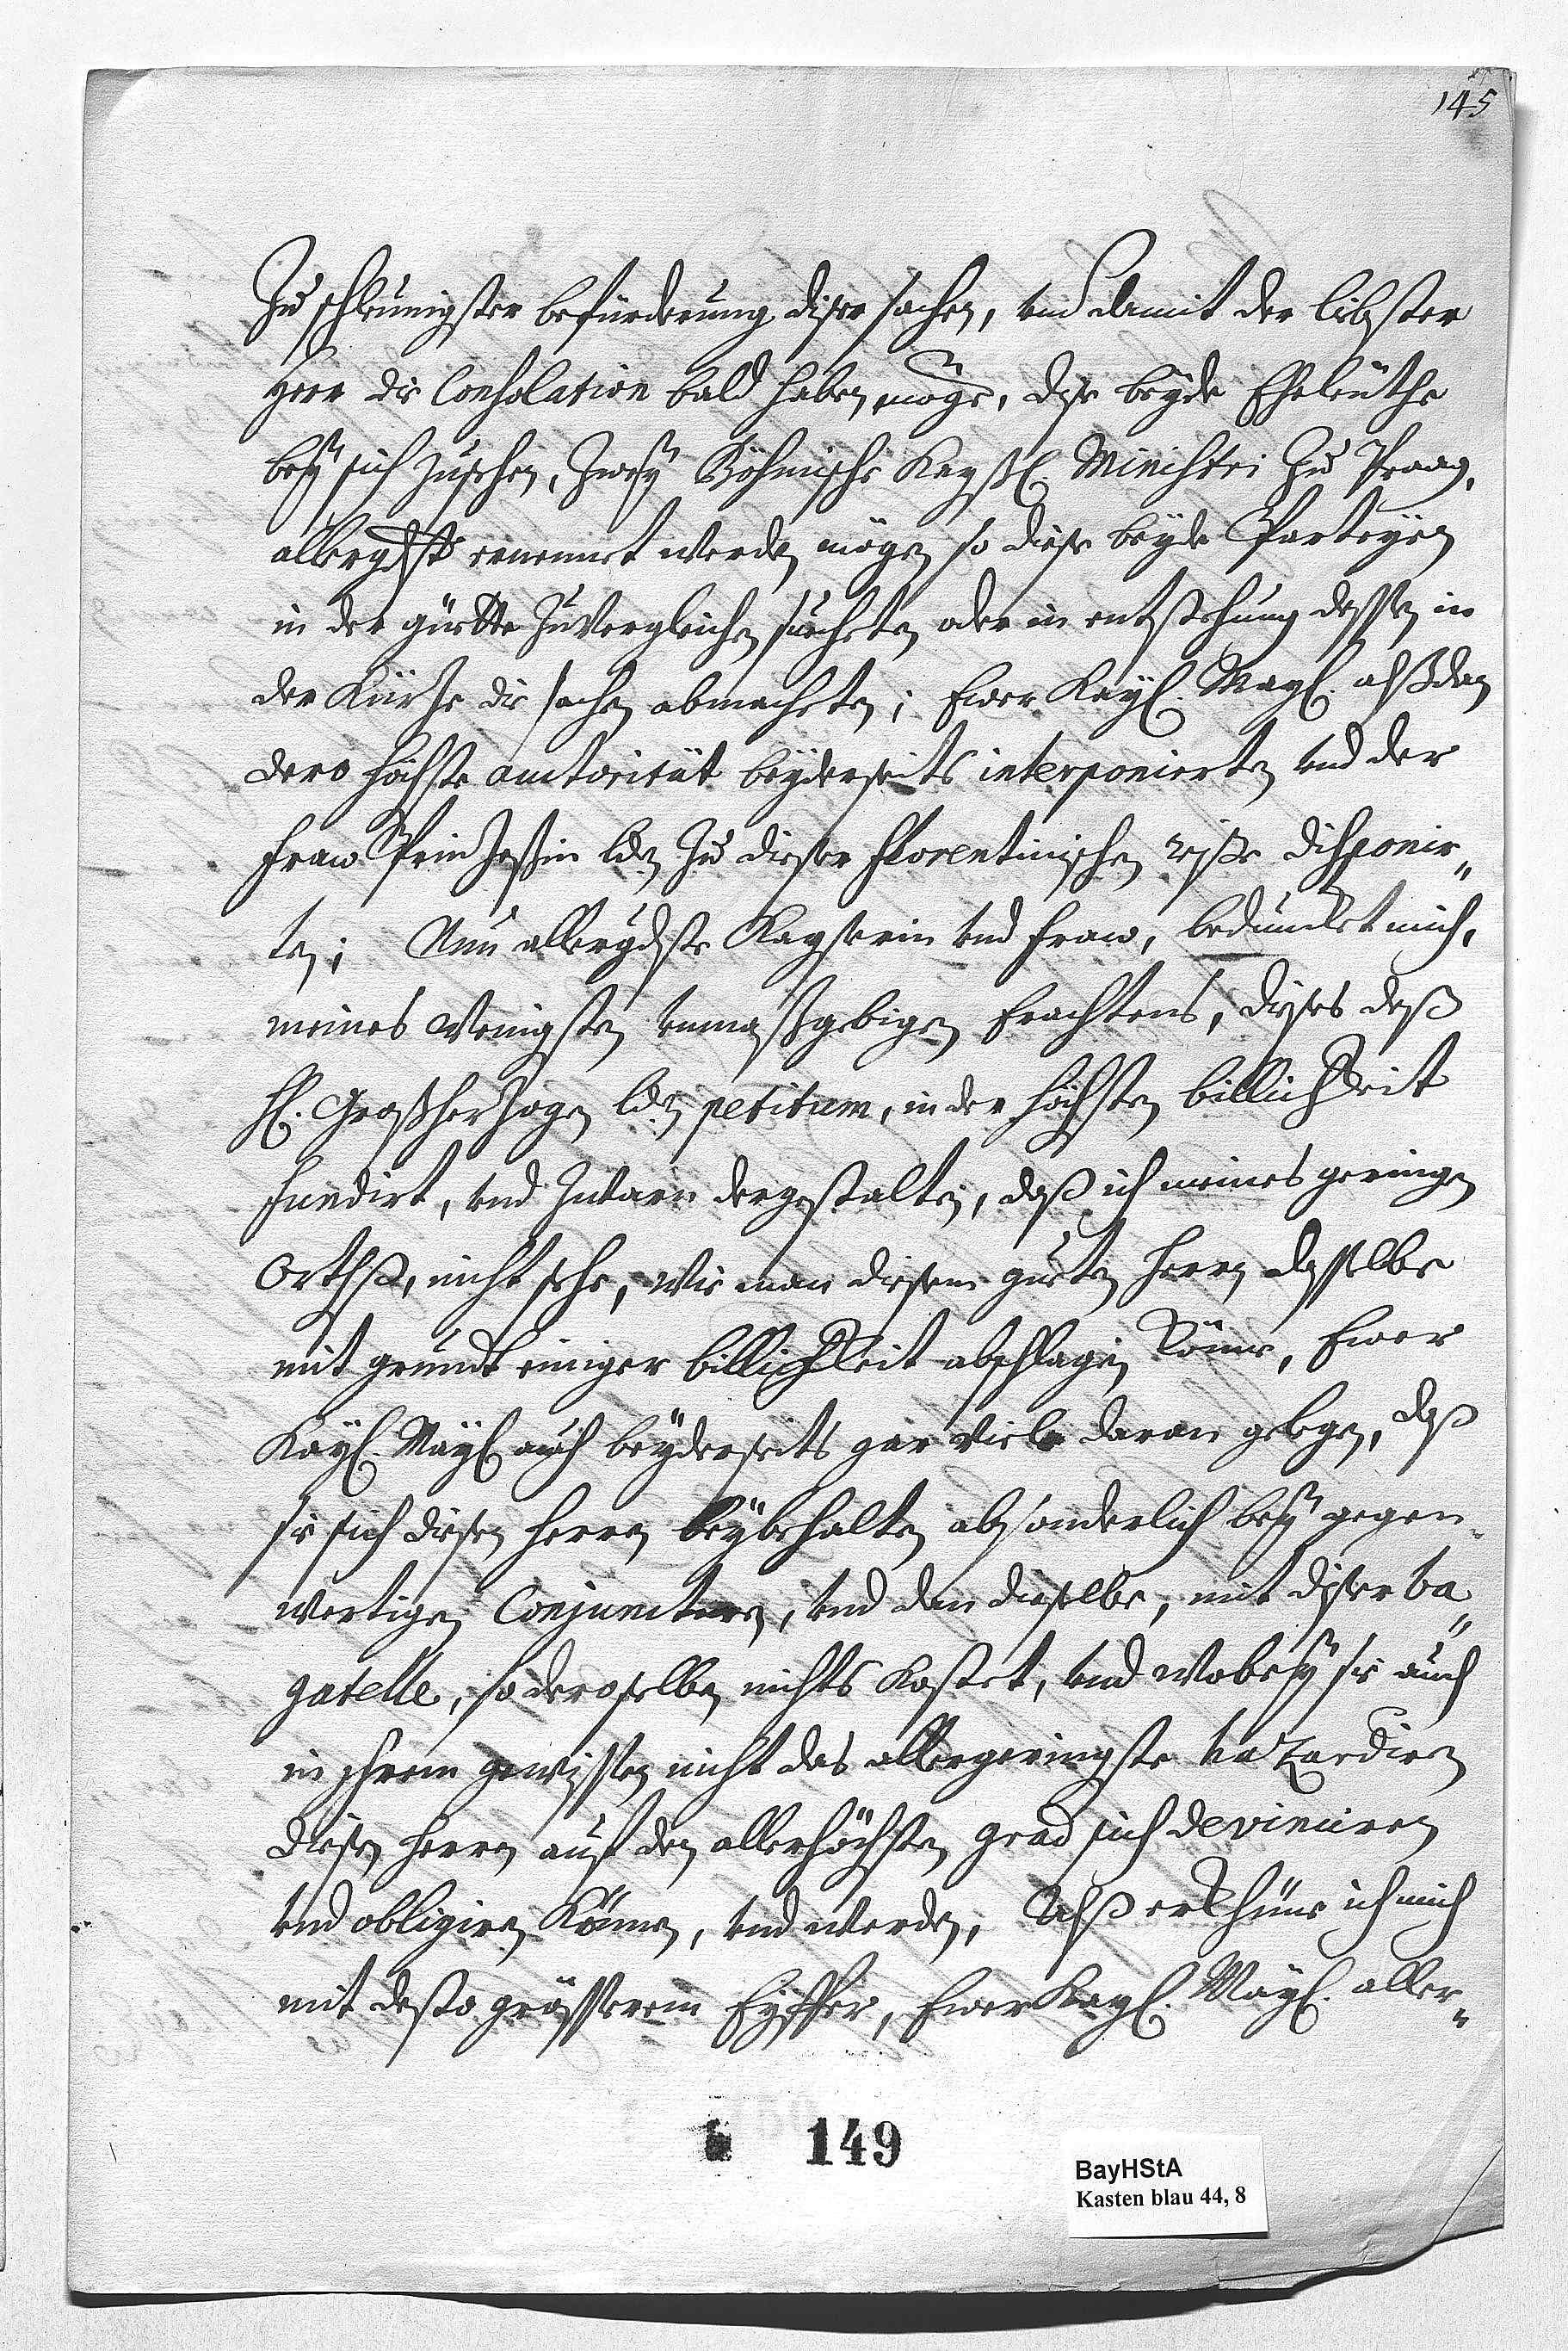 145
Zu schleunigster befürderung diser sachen, vnd damit der liebster
Herr die Consolation bald haben möge, dise beyde Eheleuthe
bey sich zusehen, Zwey Böhmische Kayßl. Ministri Zu Praag,
allergdst ernennet werden mögen so diese beyde Partheyen
in der güette Zuvergleichen suecheten oder in entstehung dessen in
der Kürtze die sachen abmacheten; Ewer Kayl. Mayl. alßdan
dero höchste autorität beyderseits interponierten vnd der
Fraw Prinzeßin Lden Zu dieser Florentinischen reiße disponir„
ten; Nun allergdste Kayserin vnd Fraw, bedunket mich,
meines wenigsten vnmaßgebigen Erachtens, dieses deß
H. Großherzogen Lden petitum, in der höchsten billichkeit
fundirt, vnd Zwarn dergestalten, daß ich meines geringen
Orthß, nicht sehe, wie man diesem gueten Herren dasselbe
mit grundt einiger billichkeit abschlagen könne, Ewer
Kayl. Mayl auch beyderseits gar viele daran gelegen, daß
sie sich diesen Herren beybehalten absonderlich bey gegen„
wertigen Conjuncturen, vnd dan dieselbe, mit diser ba„
gatelle, so deroselben nichts Kostet, vnd wobey sie auch
in Ihrem gewissen nicht das allergeringste hazardiren
diesen Herren auf den allerhöchsten grad sich devinciren
vnd obligiren Können, vnd werden, Alß erkhüne ich mich
mit desto grösserem Eyffer, Ewer Kayl. Mayl. aller„
149
BayHStA
Kasten blau 44, 8